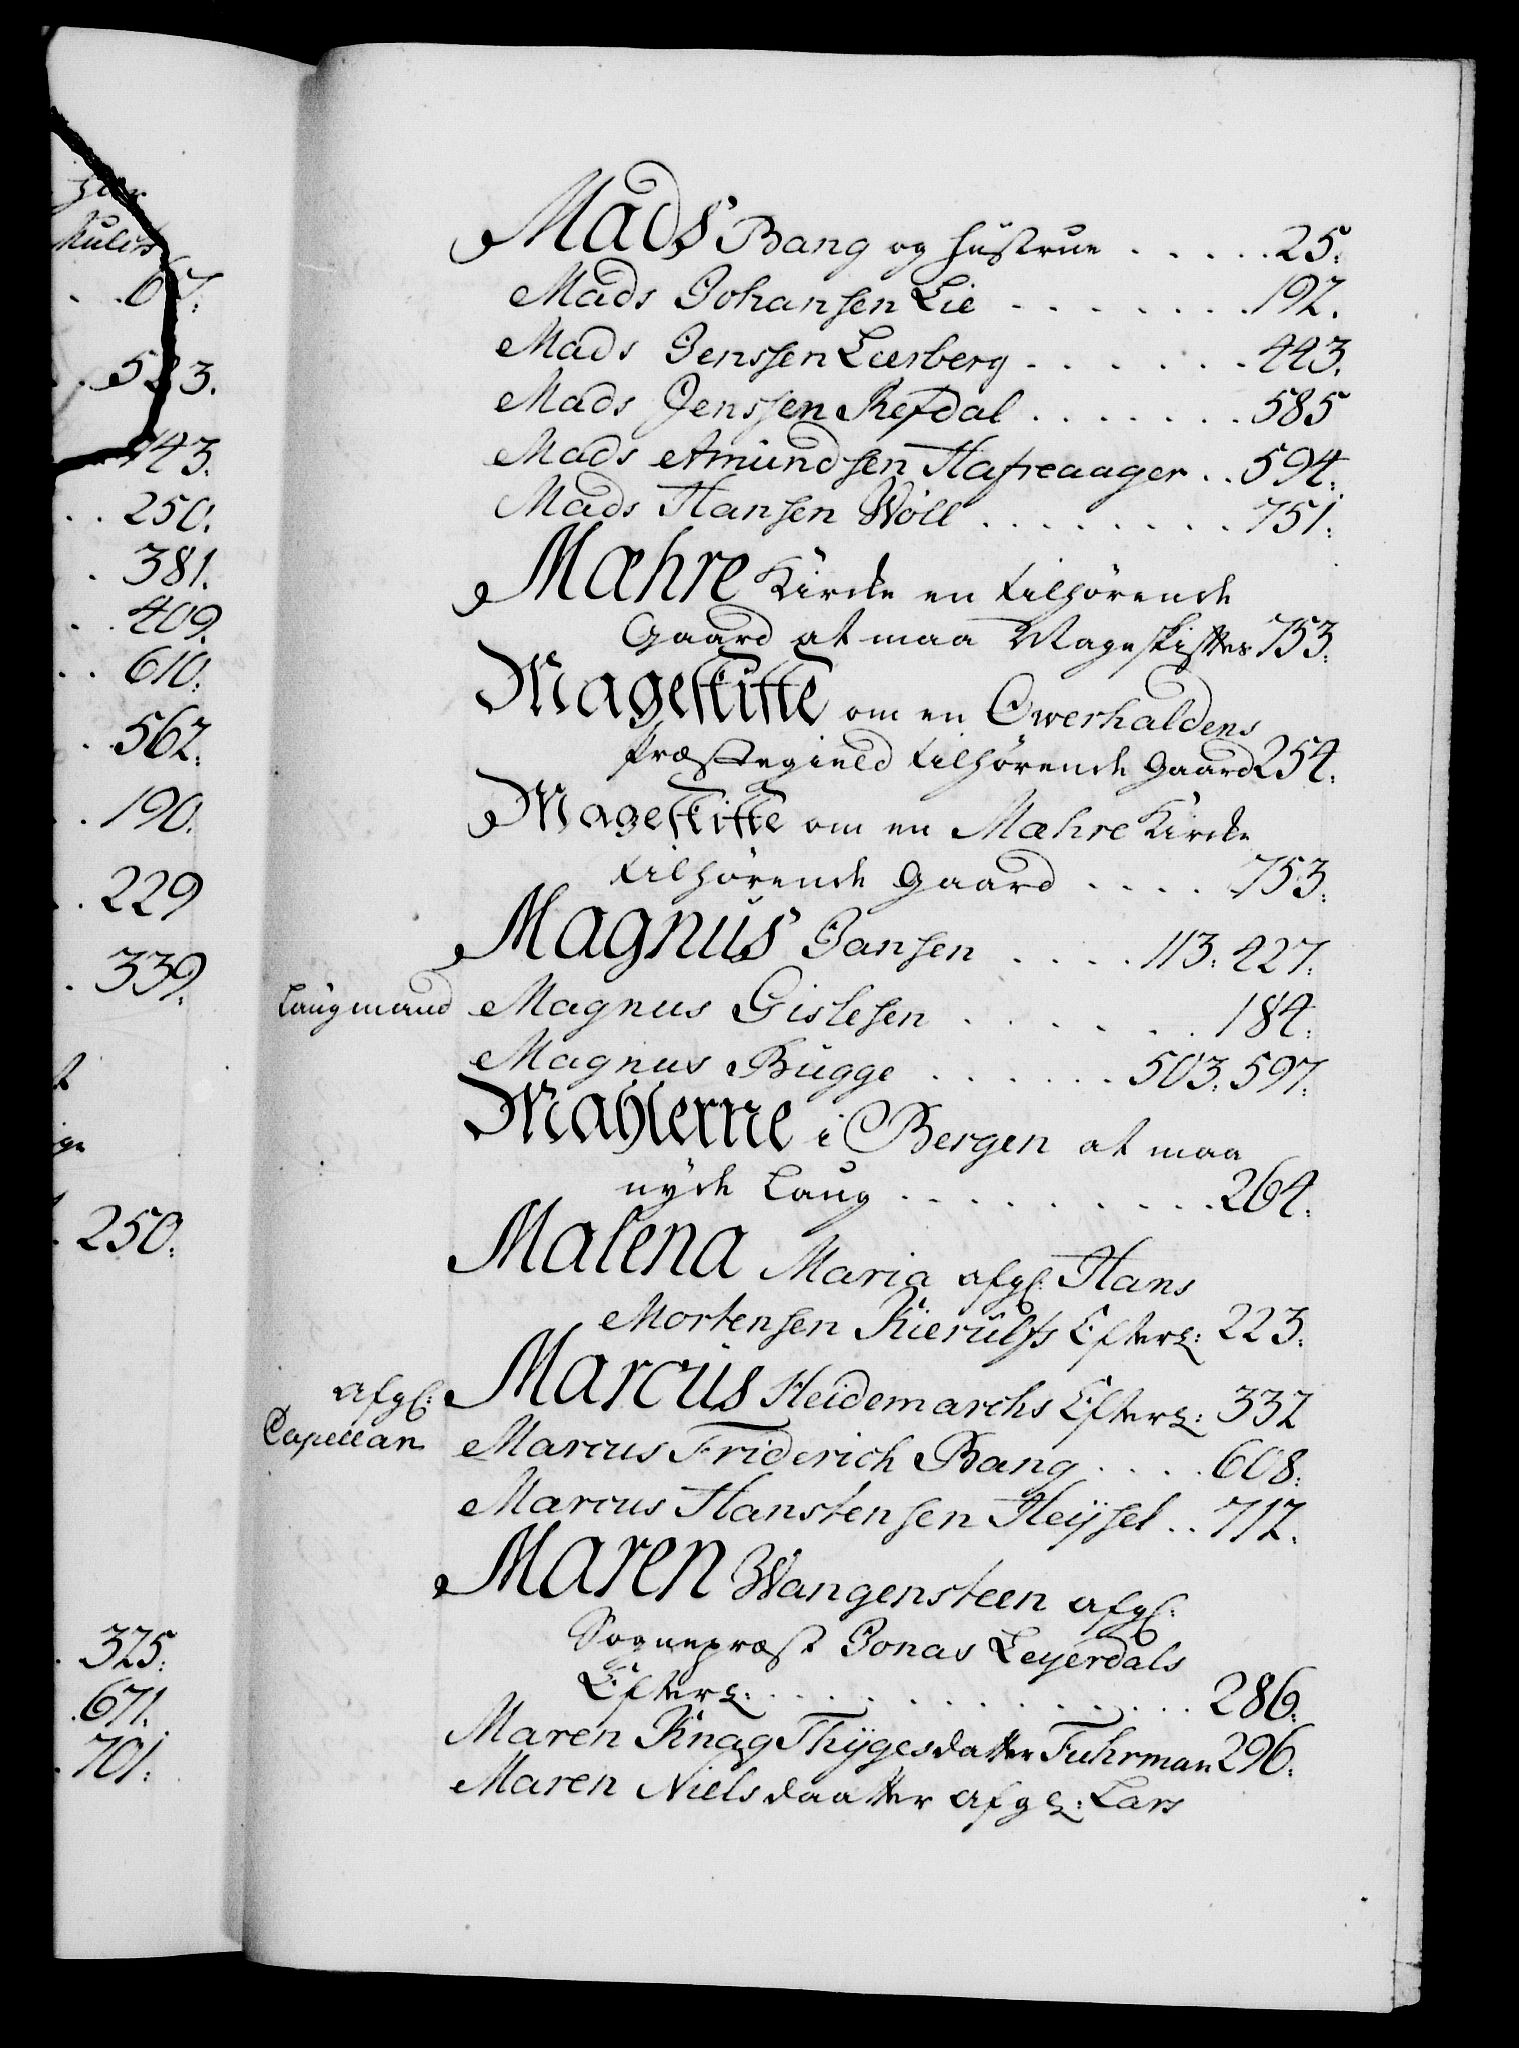 67.
583.
743.
250.
381.
409.
610.
562.
190.
229
339.
250.
325.
671.
701.
Mads Bang og Hustrue . . . . . 25.
Mads Johansen Lie . . . . . . . 192.
Mads Jenssen Lærberg . . . . . . . 443.
Mads Jenssen Refdal . . . . . . . 585
Mads Amundsen Hafreaager . . 594.
Mads Hansen Wøll . . . . . . . . 751.
Mæhre Kircke en tilhørende
Gaard at maa Mageskifttes 753.
Mageskifte om en Owerhaldens
Præstegield tilhørende Gaard 254.
Mageskifte om en Mæhre Kircke
tilhørende Gaard . . . . 753.
Magnus Jansen . . . . 113. 427.
Laugmand Magnus Gislesen . . . . . . 184.
Magnus Bugge . . . . . . 503. 597.
Mahlerne i Bergen at maa
nyde Laug . . . . . . . . . 264.
Malena Maria afgl: Hans
Mortensen Kierulfs Efterl: 223.
afgl: Marcus Heidemarchs Efterl: 332
Capellan Marcus Friderich Bang . . . . 608.
Marcus Hanstensen Heysel . . 712.
Maren Wangensteen afgl:
Sognepræst Jonas Leyerdals
Efterl: . . . . . . . . . . . . 286.
Maren Knag Thygesdatter Fuhrman 296.
Maren Nielsdaatter afgl: Lars